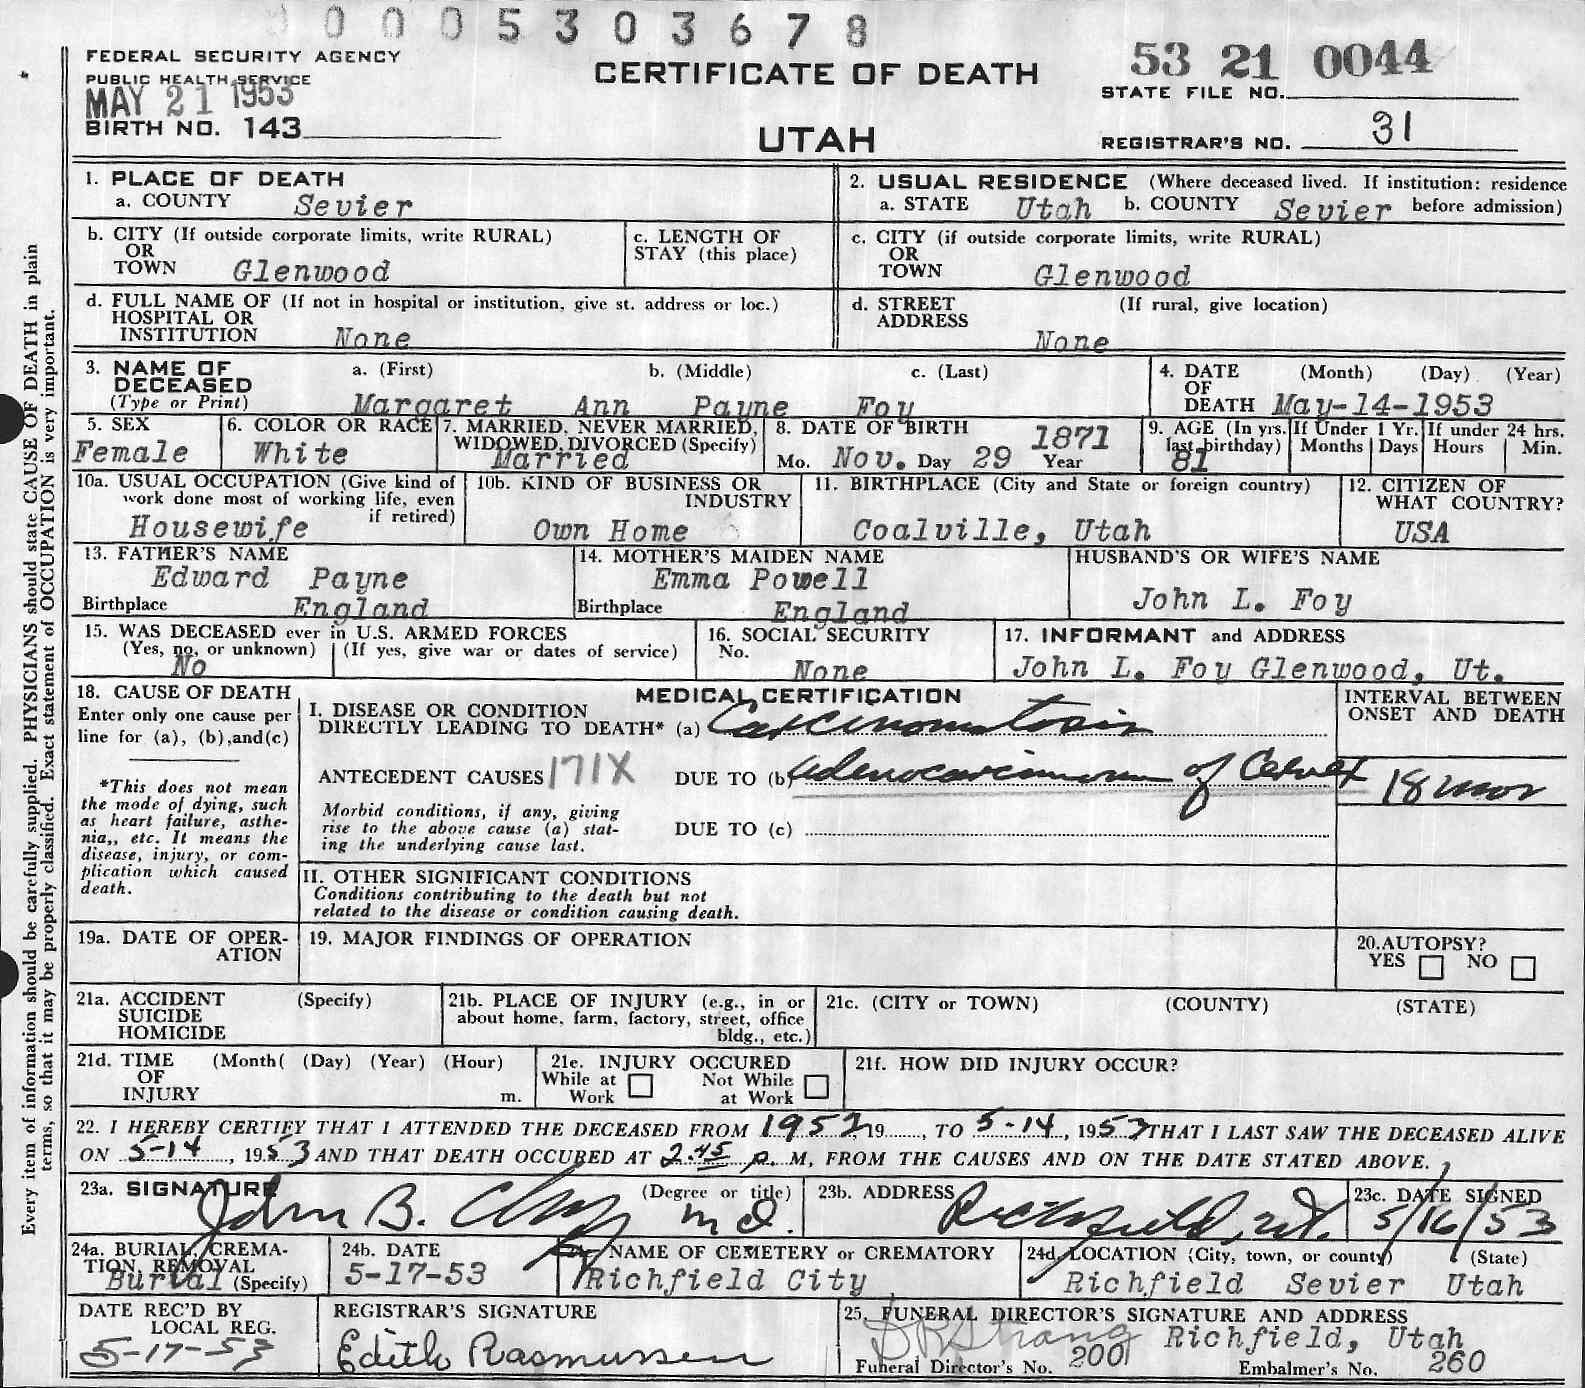 0005303678
FEDERAL SECURITY AGENCY
PUBLIC HEALTH SERVICE
MAY 21 1953
BIRTH NO. 143
CERTIFICATE OF DEATH
UTAH
53 21 0044
STATE FILE NO.
REGISTRAR'S NO. 31
Every item of information should be carefully supplied. PHYSICIANS should state CAUSE OF DEATH in plain
terms, so that it may be properly classified. Exact statement of OCCUPATION is very important.
1. PLACE OF DEATH
a. COUNTY Sevier
2. USUAL RESIDENCE (Where deceased lived. If institution: residence
a. STATE Utah b. COUNTY Sevier before admission)
b. CITY (If outside corporate limits, write RURAL)
OR
TOWN Glenwood
c. LENGTH OF
STAY (this place)
c. CITY (if outside corporate limits, write RURAL)
OR
TOWN Glenwood
d. FULL NAME OF (If not in hospital or institution, give st. address or loc.)
HOSPITAL OR
INSTITUTION None
d. STREET (If rural, give location)
ADDRESS
None
3. NAME OF a. (First) b. (Middle) c. (Last)
DECEASED
(Type or Print) Margaret Ann Payne Foy
4. DATE (Month) (Day) (Year)
OF
DEATH May-14-1953
5. SEX
Female
6. COLOR OR RACE
White
7. MARRIED, NEVER MARRIED,
WIDOWED, DIVORCED (Specify)
Married
8. DATE OF BIRTH 1871
Mo. Nov. Day 29 Year
9. AGE (In yrs.
last birthday)
81
If Under 1 Yr.
Months Days
If under 24 hrs.
Hours Min.
10a. USUAL OCCUPATION (Give kind of
work done most of working life, even
if retired)
Housewife
10b. KIND OF BUSINESS OR
INDUSTRY
Own Home
11. BIRTHPLACE (City and State or foreign country)
Coalville, Utah
12. CITIZEN OF
WHAT COUNTRY?
USA
13. FATHER'S NAME
Edward Payne
Birthplace England
14. MOTHER'S MAIDEN NAME
Emma Powell
Birthplace England
HUSBAND'S OR WIFE'S NAME
John L. Foy
15. WAS DECEASED ever in U.S. ARMED FORCES
(Yes, no, or unknown) (If yes, give war or dates of service)
No
16. SOCIAL SECURITY
No.
None
17. INFORMANT and ADDRESS
John L. Foy Glenwood, Ut.
18. CAUSE OF DEATH
Enter only one cause per
line for (a), (b),and(c)
*This does not mean
the mode of dying, such
as heart failure, asthe-
nia,, etc. It means the
disease, injury, or com-
plication which caused
death.
MEDICAL CERTIFICATION
I. DISEASE OR CONDITION
DIRECTLY LEADING TO DEATH* (a) Carcinomatosis
ANTECEDENT CAUSES 171X DUE TO (b) Adenocarcinoma of Cervix
Morbid conditions, if any, giving
rise to the above cause (a) stat-
ing the underlying cause last.
DUE TO (c)
INTERVAL BETWEEN
ONSET AND DEATH
18 mos
II. OTHER SIGNIFICANT CONDITIONS
Conditions contributing to the death but not
related to the disease or condition causing death.
19a. DATE OF OPER-
ATION
19. MAJOR FINDINGS OF OPERATION
20.AUTOPSY?
YES NO
21a. ACCIDENT (Specify)
SUICIDE
HOMICIDE
21b. PLACE OF INJURY (e.g., in or
about home, farm, factory, street, office
bldg., etc.)
21c. (CITY or TOWN) (COUNTY) (STATE)
21d. TIME (Month( (Day) (Year) (Hour)
OF
INJURY m.
21e. INJURY OCCURED
While at Not While
Work at Work
21f. HOW DID INJURY OCCUR?
22. I HEREBY CERTIFY THAT I ATTENDED THE DECEASED FROM 1952, 19, TO 5-14, 1953 THAT I LAST SAW THE DECEASED ALIVE
ON 5-14, 1953 AND THAT DEATH OCCURED AT 2:45 p. M, FROM THE CAUSES AND ON THE DATE STATED ABOVE.
23a. SIGNATURE (Degree or title)
John B. MD.
23b. ADDRESS
Richfield, Ut.
23c. DATE SIGNED
5/16/53
24a. BURIAL, CREMA-
TION, REMOVAL
Burial (Specify)
24b. DATE
5-17-53
NAME OF CEMETERY or CREMATORY
Richfield City
24d. LOCATION (City, town, or county) (State)
Richfield Sevier Utah
DATE REC'D BY
LOCAL REG.
5-17-53
REGISTRAR'S SIGNATURE
Edith Rasmussen
25. FUNERAL DIRECTOR'S SIGNATURE AND ADDRESS
Strang Richfield, Utah
Funeral Director's No. 200 Embalmer's No. 260